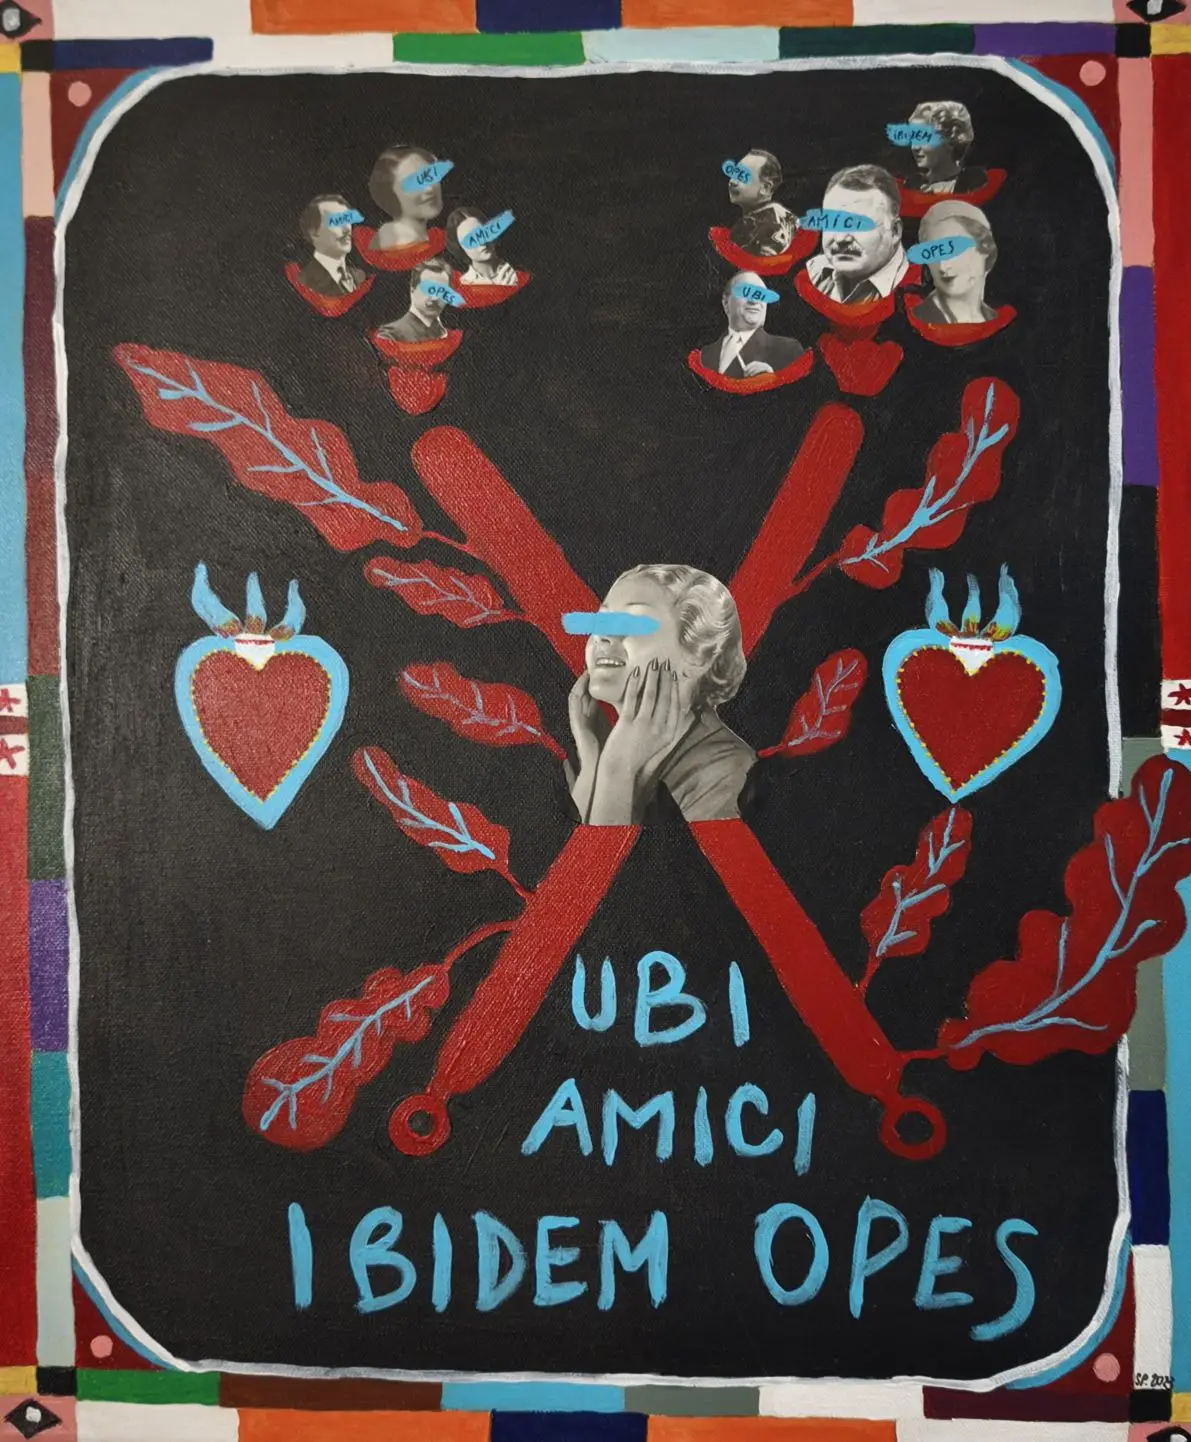 IBIDEM
UBI
OPES
AMICI
AMICI
AMICI
OPES
OPES
UBI
UBI
AMICI
IBIDEM OPES
S.P. 2023